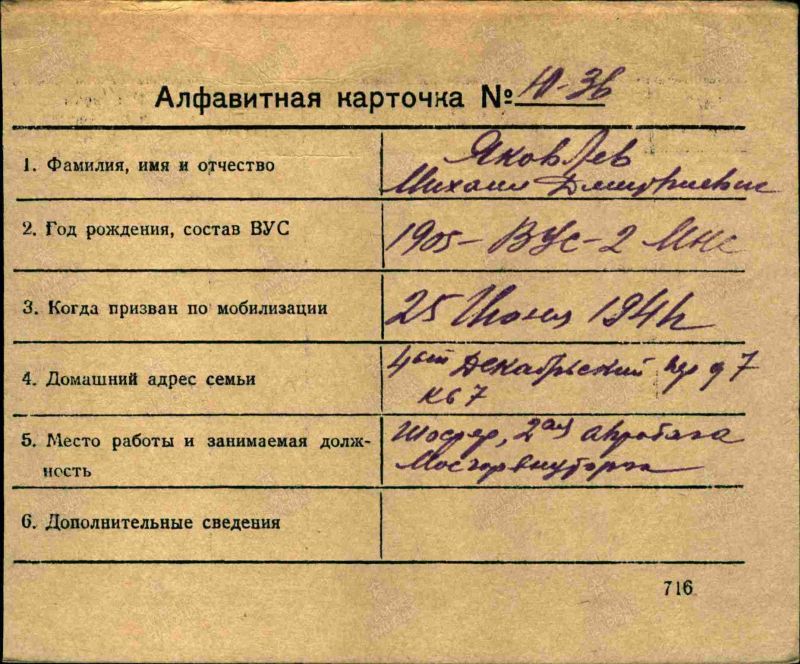 Алфавитная карточка №
1. Фамилия, имя и отчество
Яковлев
Михаил Дмитриевич
2. Год рождения, состав ВУС
1905 - ВУС - 2 МНС
3. Когда призван по мобилизации
25 Июня 1941
4. Домашний адрес семьи
4ый Декабрьский д 7
кв 7
5. Место работы и занимаемая долж-
ность
Шофер, 2ая
6. Дополнительные сведения
716